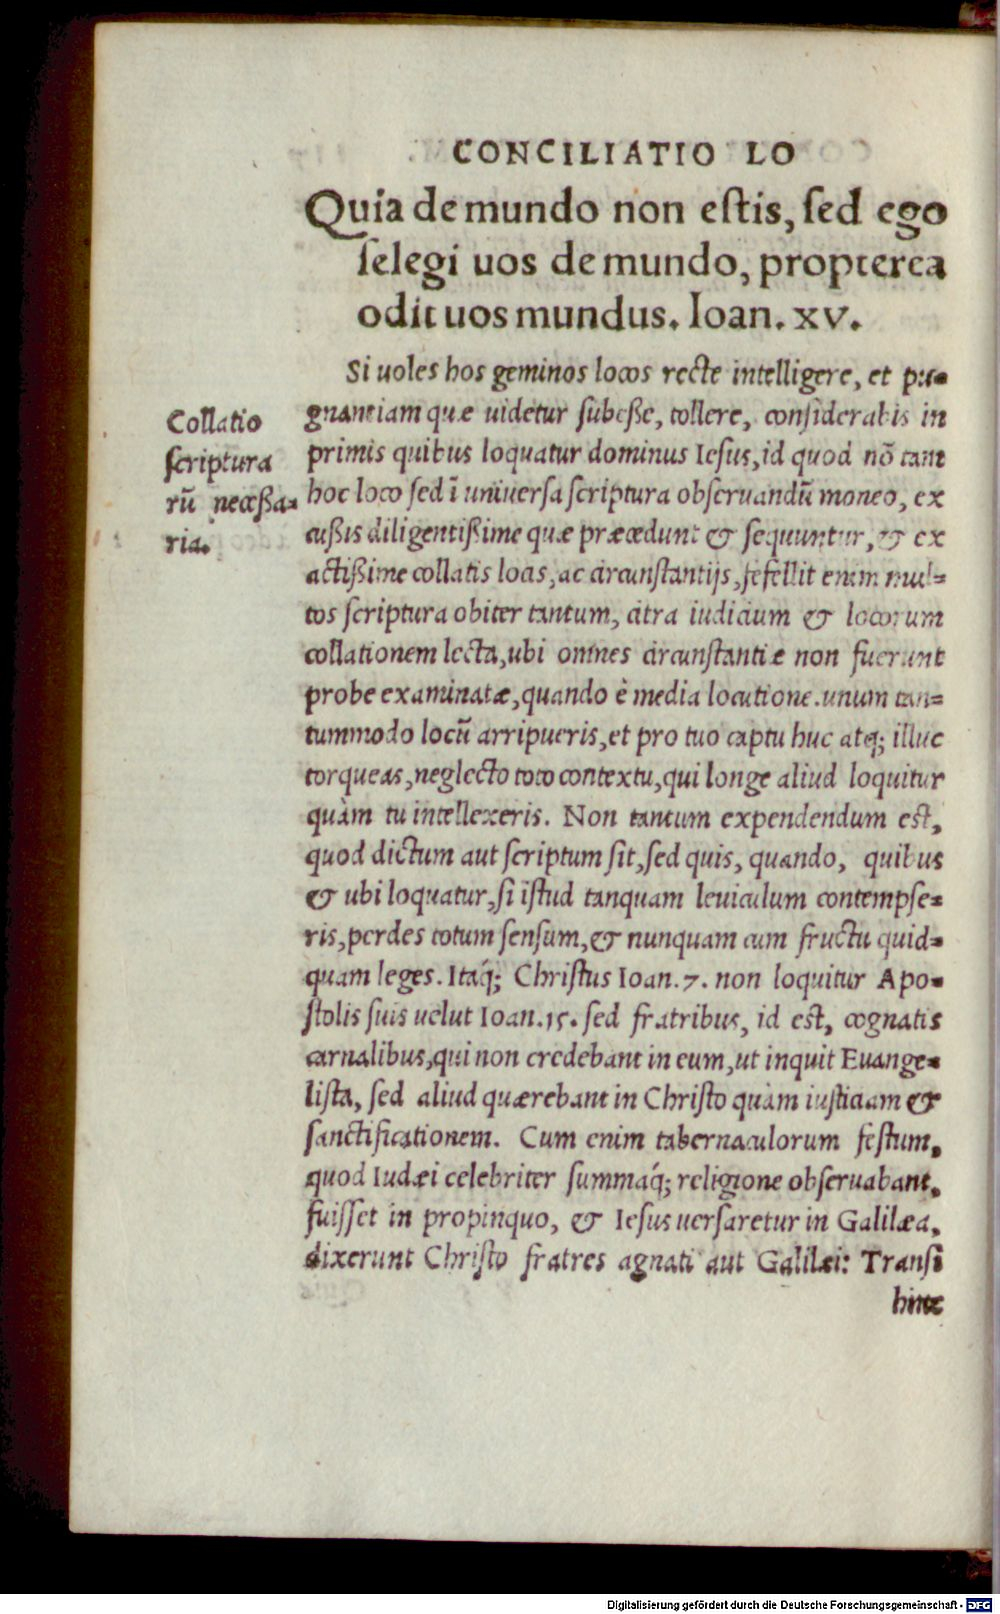 CONCILIATIO LO
Quia de mundo non estis, sed ego
selegi uos de mundo, propterea
odit uos mundus. Ioan. XV.
Si uoles hos geminos locos recte intelligere, et pu-
gnantiam quæ uidetur subeße, tollere, considerabis in
primis quibus loquatur dominus Iesus, id quod nō tant
hoc loco sed ī uniuersa scriptura obseruandū moneo, ex
cußis diligentißime quæ præcedunt & sequuntur, & ex
actißime collatis locis, ac circunstantijs, fefellit enim mul-
tos scriptura obiter tantum, citra iudicium & locorum
collationem lecta, ubi omnes circunstantiæ non fuerunt
probe examinatæ, quando è media locutione. unum tan-
tummodo locū arripueris, et pro tuo captu huc atq; illuc
torqueas, neglecto toto contextu, qui longe aliud loquitur
quàm tu intellexeris. Non tantum expendendum est,
quod dictum aut scriptum sit, sed quis, quando, quibus
& ubi loquatur, si istud tanquam leuiculum contempse-
ris, perdes totum sensum, & nunquam cum fructu quid-
quam leges. Itaq́; Christus Ioan. 7. non loquitur Apo-
stolis suis uelut Ioan. 15. sed fratribus, id est, cognatis
carnalibus, qui non credebant in eum, ut inquit Euange-
lista, sed aliud quærebant in Christo quàm iusticiam &
sanctificationem. Cum enim tabernaculorum festum,
quod Iudæi celebriter summaq́; religione obseruabant,
fuisset in propinquo, & Iesus uersaretur in Galilæa,
dixerunt Christo fratres agnati aut Galilæi: Transi
hinc
Collatio
scriptura
rū neceßa-
ria.
Digitalisierung gefördert durch die Deutsche Forschungsgemeinschaft - DFG